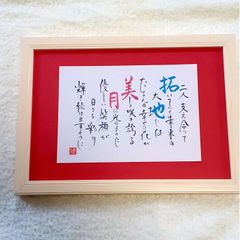 二人 支え合って
拓いていく未来の
大地には
たくさんの幸せの花が
美しく咲き誇る
月の光のように
優しい笑顔が
日々を彩り
輝き続けますように